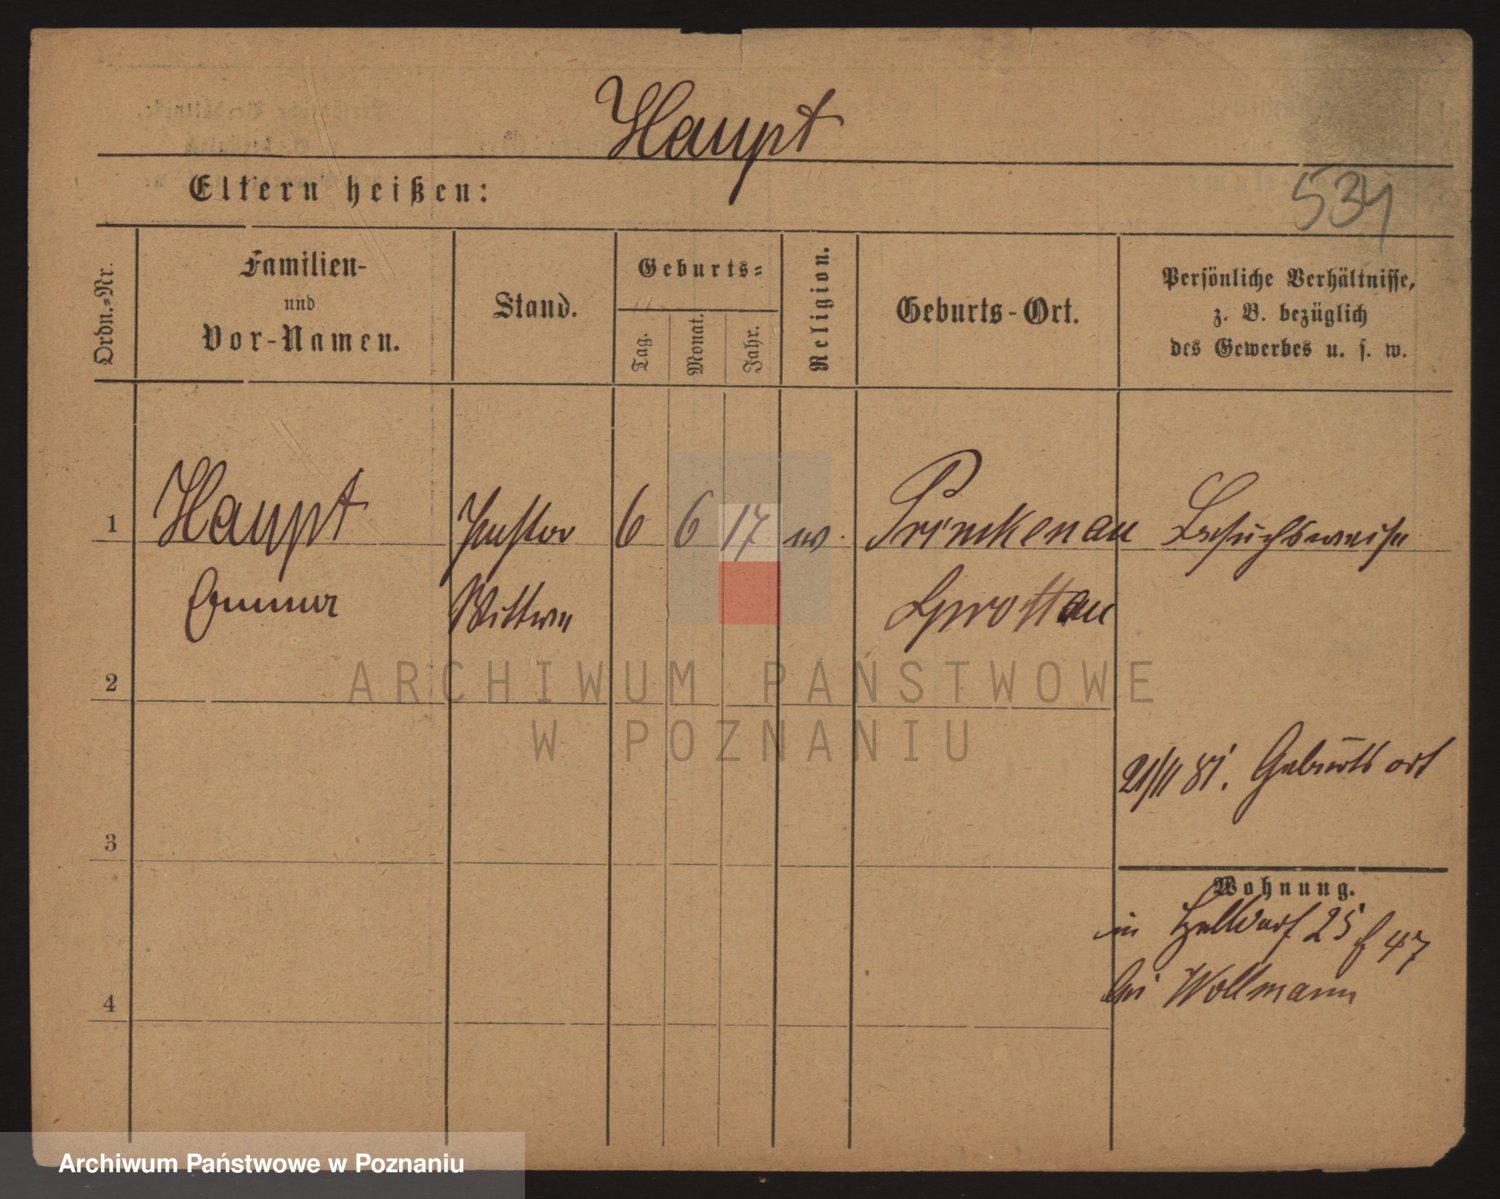 Haupt
Eltern heißen:
534
Ordn.=Nr.
Familien-
und
Vor-Namen.
Stand.
Geburts=
Tag.
Monat.
Jahr.
Religion.
Geburts-Ort.
Persönliche Verhältnisse,
z. B. bezüglich
des Gewerbes u. s. w.
1
Haupt
Pastor
6
6
17
Primkenau
Besuchsweise
Emma
Wittwe
Sprottau
2
ARCHIWUM PAŃSTWOWE
W POZNANIU
21/11 81. Geburtsort
3
Wohnung.
in Halldorf 25
47
bei Wollmann
4
Archiwum Państwowe w Poznaniu